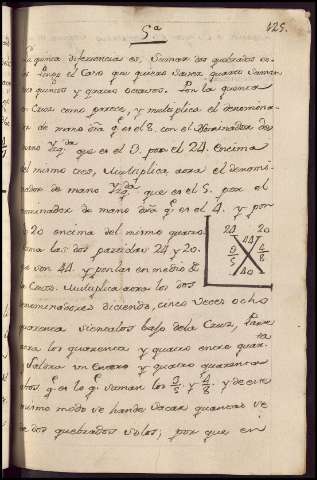 5ª
125.
La quinta diferencia es, sumar dos quebrados
el caso que quiero saver quanto suman
tres quintos y quatro octavos. Pon la quenta
en Cruz como parece, y multiplica el denomina-
dor de mano dra q.e es el 8. con el Nominador de
mano Yzq.da que es el 3. pon el 24. encima
del mismo tres, Multiplica aora el denomi-
nador de mano Yzq.da que es el 5. por el
nominador de mano dra q.e es el 4. y pon
20 encima del mismo quatro.
suma las dos partidas 24 y 20.
que son 44. y ponlas en medio de
la Cruz. Multiplica aora los dos
denominadores diciendo, cinco veces ocho
quarenta sientalos bajo de la Cruz, Parte
aora los quarenta y quatro entre quaren-
ta
y saldra un Entero y quatro quarenta
abos. q.e es lo q.e suman los 3/5 y 4/8 y de este
mismo modo se han de sacar quantas se
de dos quebrados solos; por que en
24 20
44
3/5 4/8
40